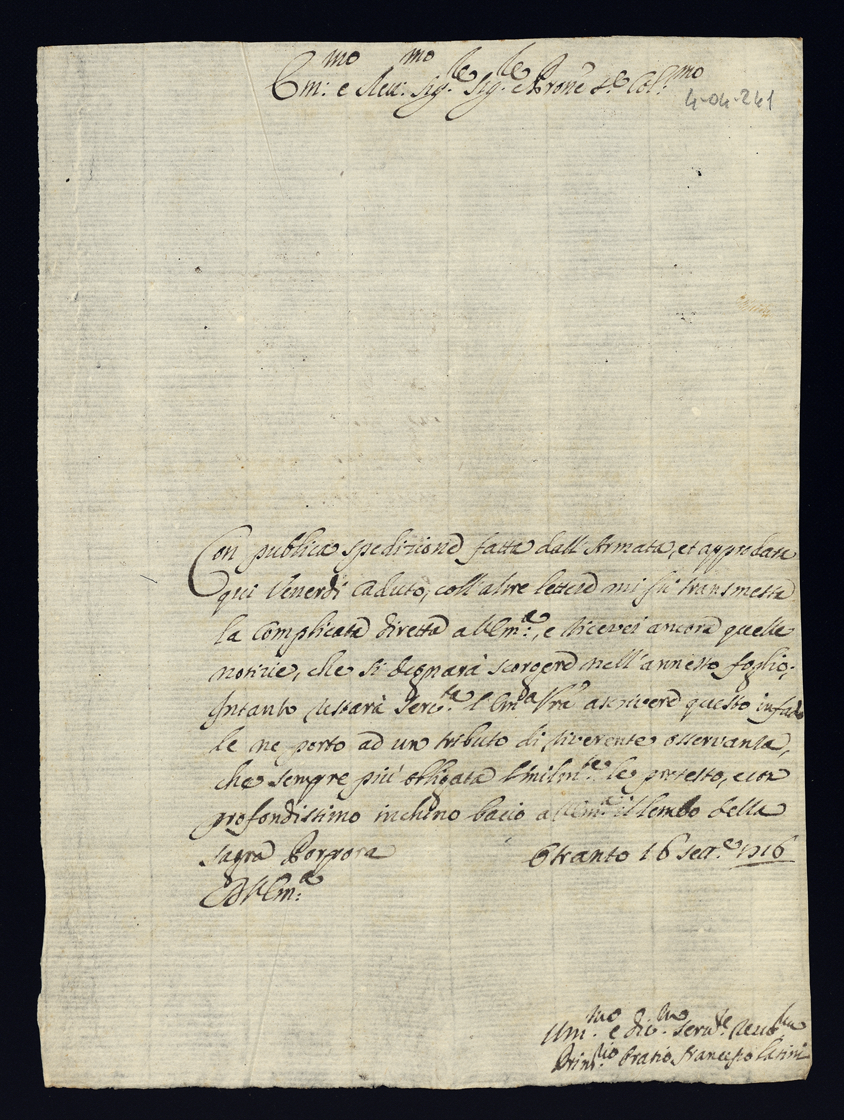 Em:mo e Reu:mo Sig:re Sig:re e Prone Col:mo
4-04-241
Con publica spedizione fatta dall'Armata, et approdata
qui Venerdì caduto, coll'altre lettere mi fù transmessa
la complicata diretta all'Em:, e ricevei ancora quelle
notizie, che si degnarà scorgere nell'annesso foglio;
Intanto restarà l'Em:za Vra ascrivere questo
le ne porto ad un tributo di riverente osservanza,
che sempre più obligata le protesto, e con
profondissimo inchino bacio all'Em: il lembo della
sagra Porpora
Otranto 16 1716
Di V Em:a
Um:mo e div:mo Seru:re
Oratio Francesco Latini